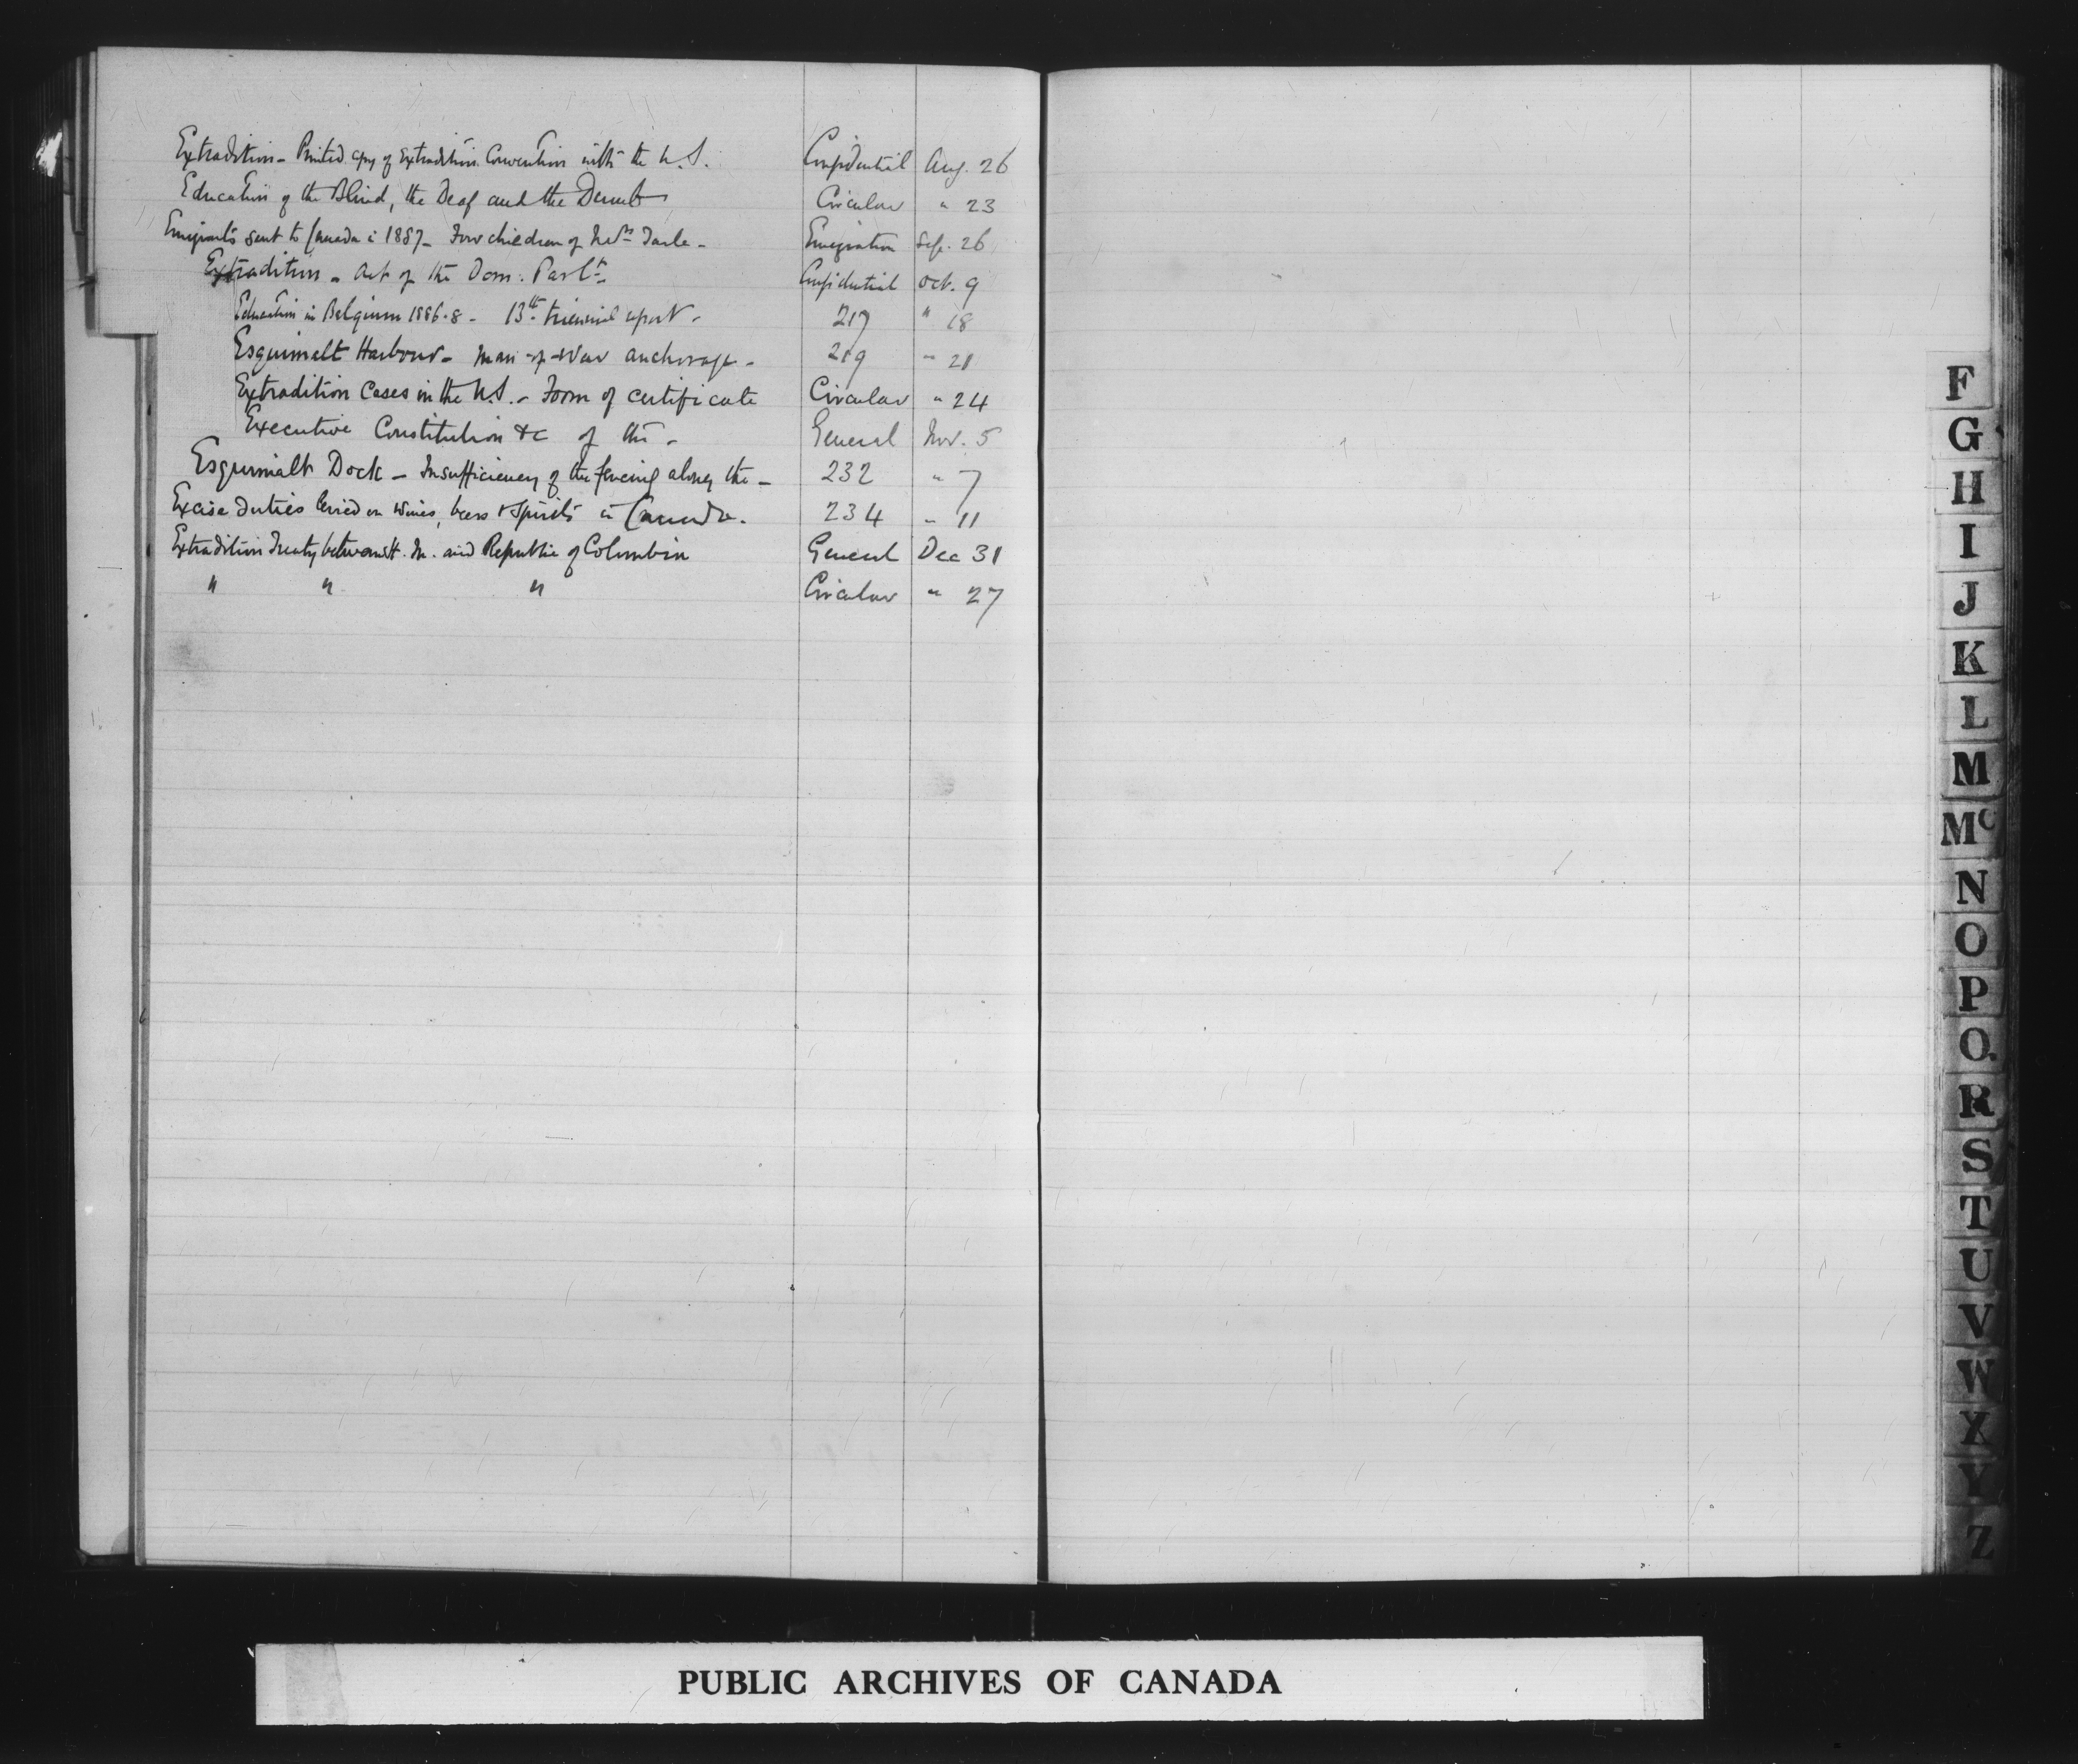 Extradition - Printed copy of Extradition Convention with the U.S. Confidential Aug. 26
Education of the Blind, the Deaf and the Dumb Circular " 23
Emigrants sent to Canada in 1887 - Four children of Emigration Sep. 26
Extradition - Act of the Dom: Parlt. Confidential Oct. 9
Education in Belgium 1886-8 - 13th triennial report - 217 " 18
Esquimalt Harbour - Man-of-War anchorage - 219 " 21
Extradition Cases in the U.S. - Form of certificate Circular " 24
Executive Constitution &c of the - General Nov. 5
Esquimalt Dock - Insufficiency of the fencing along the - 232 " 7
Excise duties levied on wines, beers & spirits in Canada. 234 " 11
Extradition Treaty between H. M. and Republic of Columbia General Dec 31
" " " Circular " 27
F
G
H
I
J
K
L
M
Mc
N
O
P
Q
R
S
T
U
V
W
X
Y
Z
PUBLIC ARCHIVES OF CANADA